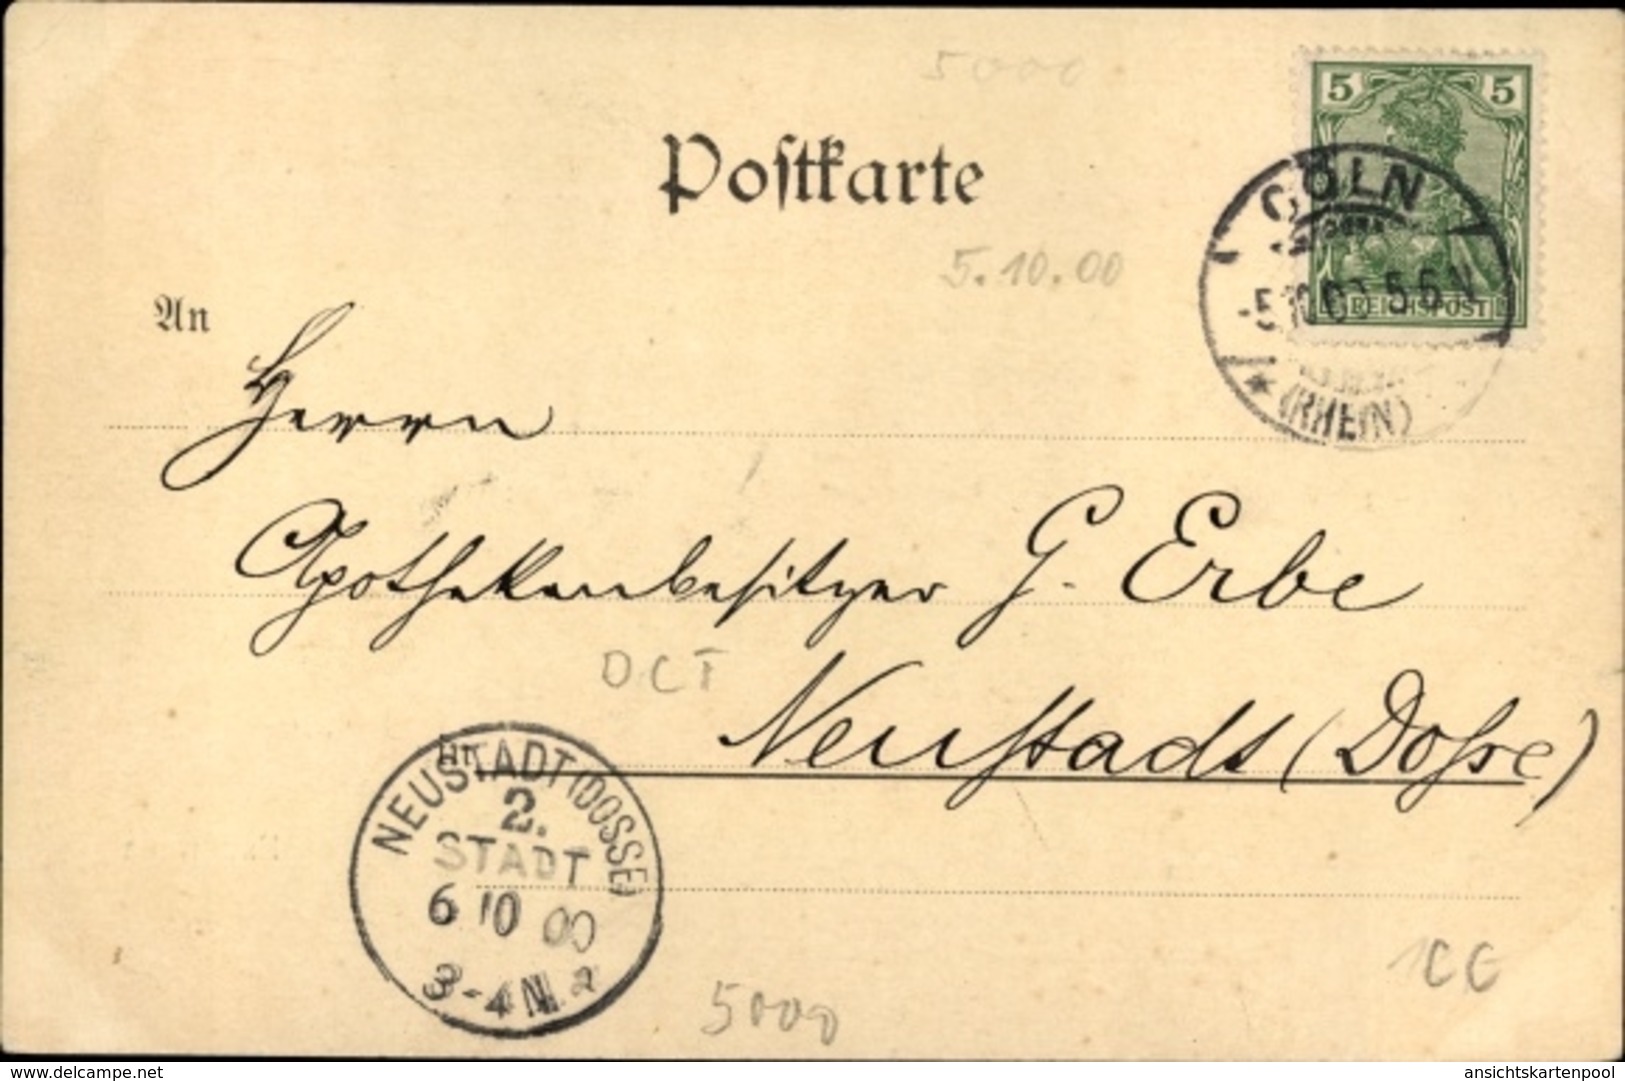 5000
5 5
Postkarte
CÖLN
5.10.00
-5.10.00 5-6 N
REICHSPOST
An
* (RHEIN)
Herrn
Apothekenbesitzer G. Erbe
OCT
Neustadt (Dosse)
NEUSTADT (DOSSE)
2.
STADT
6 10 00
3-4 N.
5000
www.delcampe.net
ansichtskartenpool